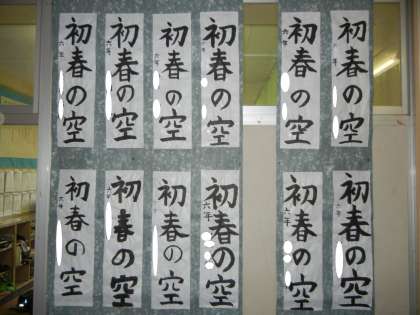 初春の空
六年
初春の空
六年
初春の空
六年
初春の空
六年
初春の空
六年
初春の空
六年
初春の空
六年
初春の空
六年
初春の空
六年
初春の空
六年
初春の空
六年
初春の空
六年